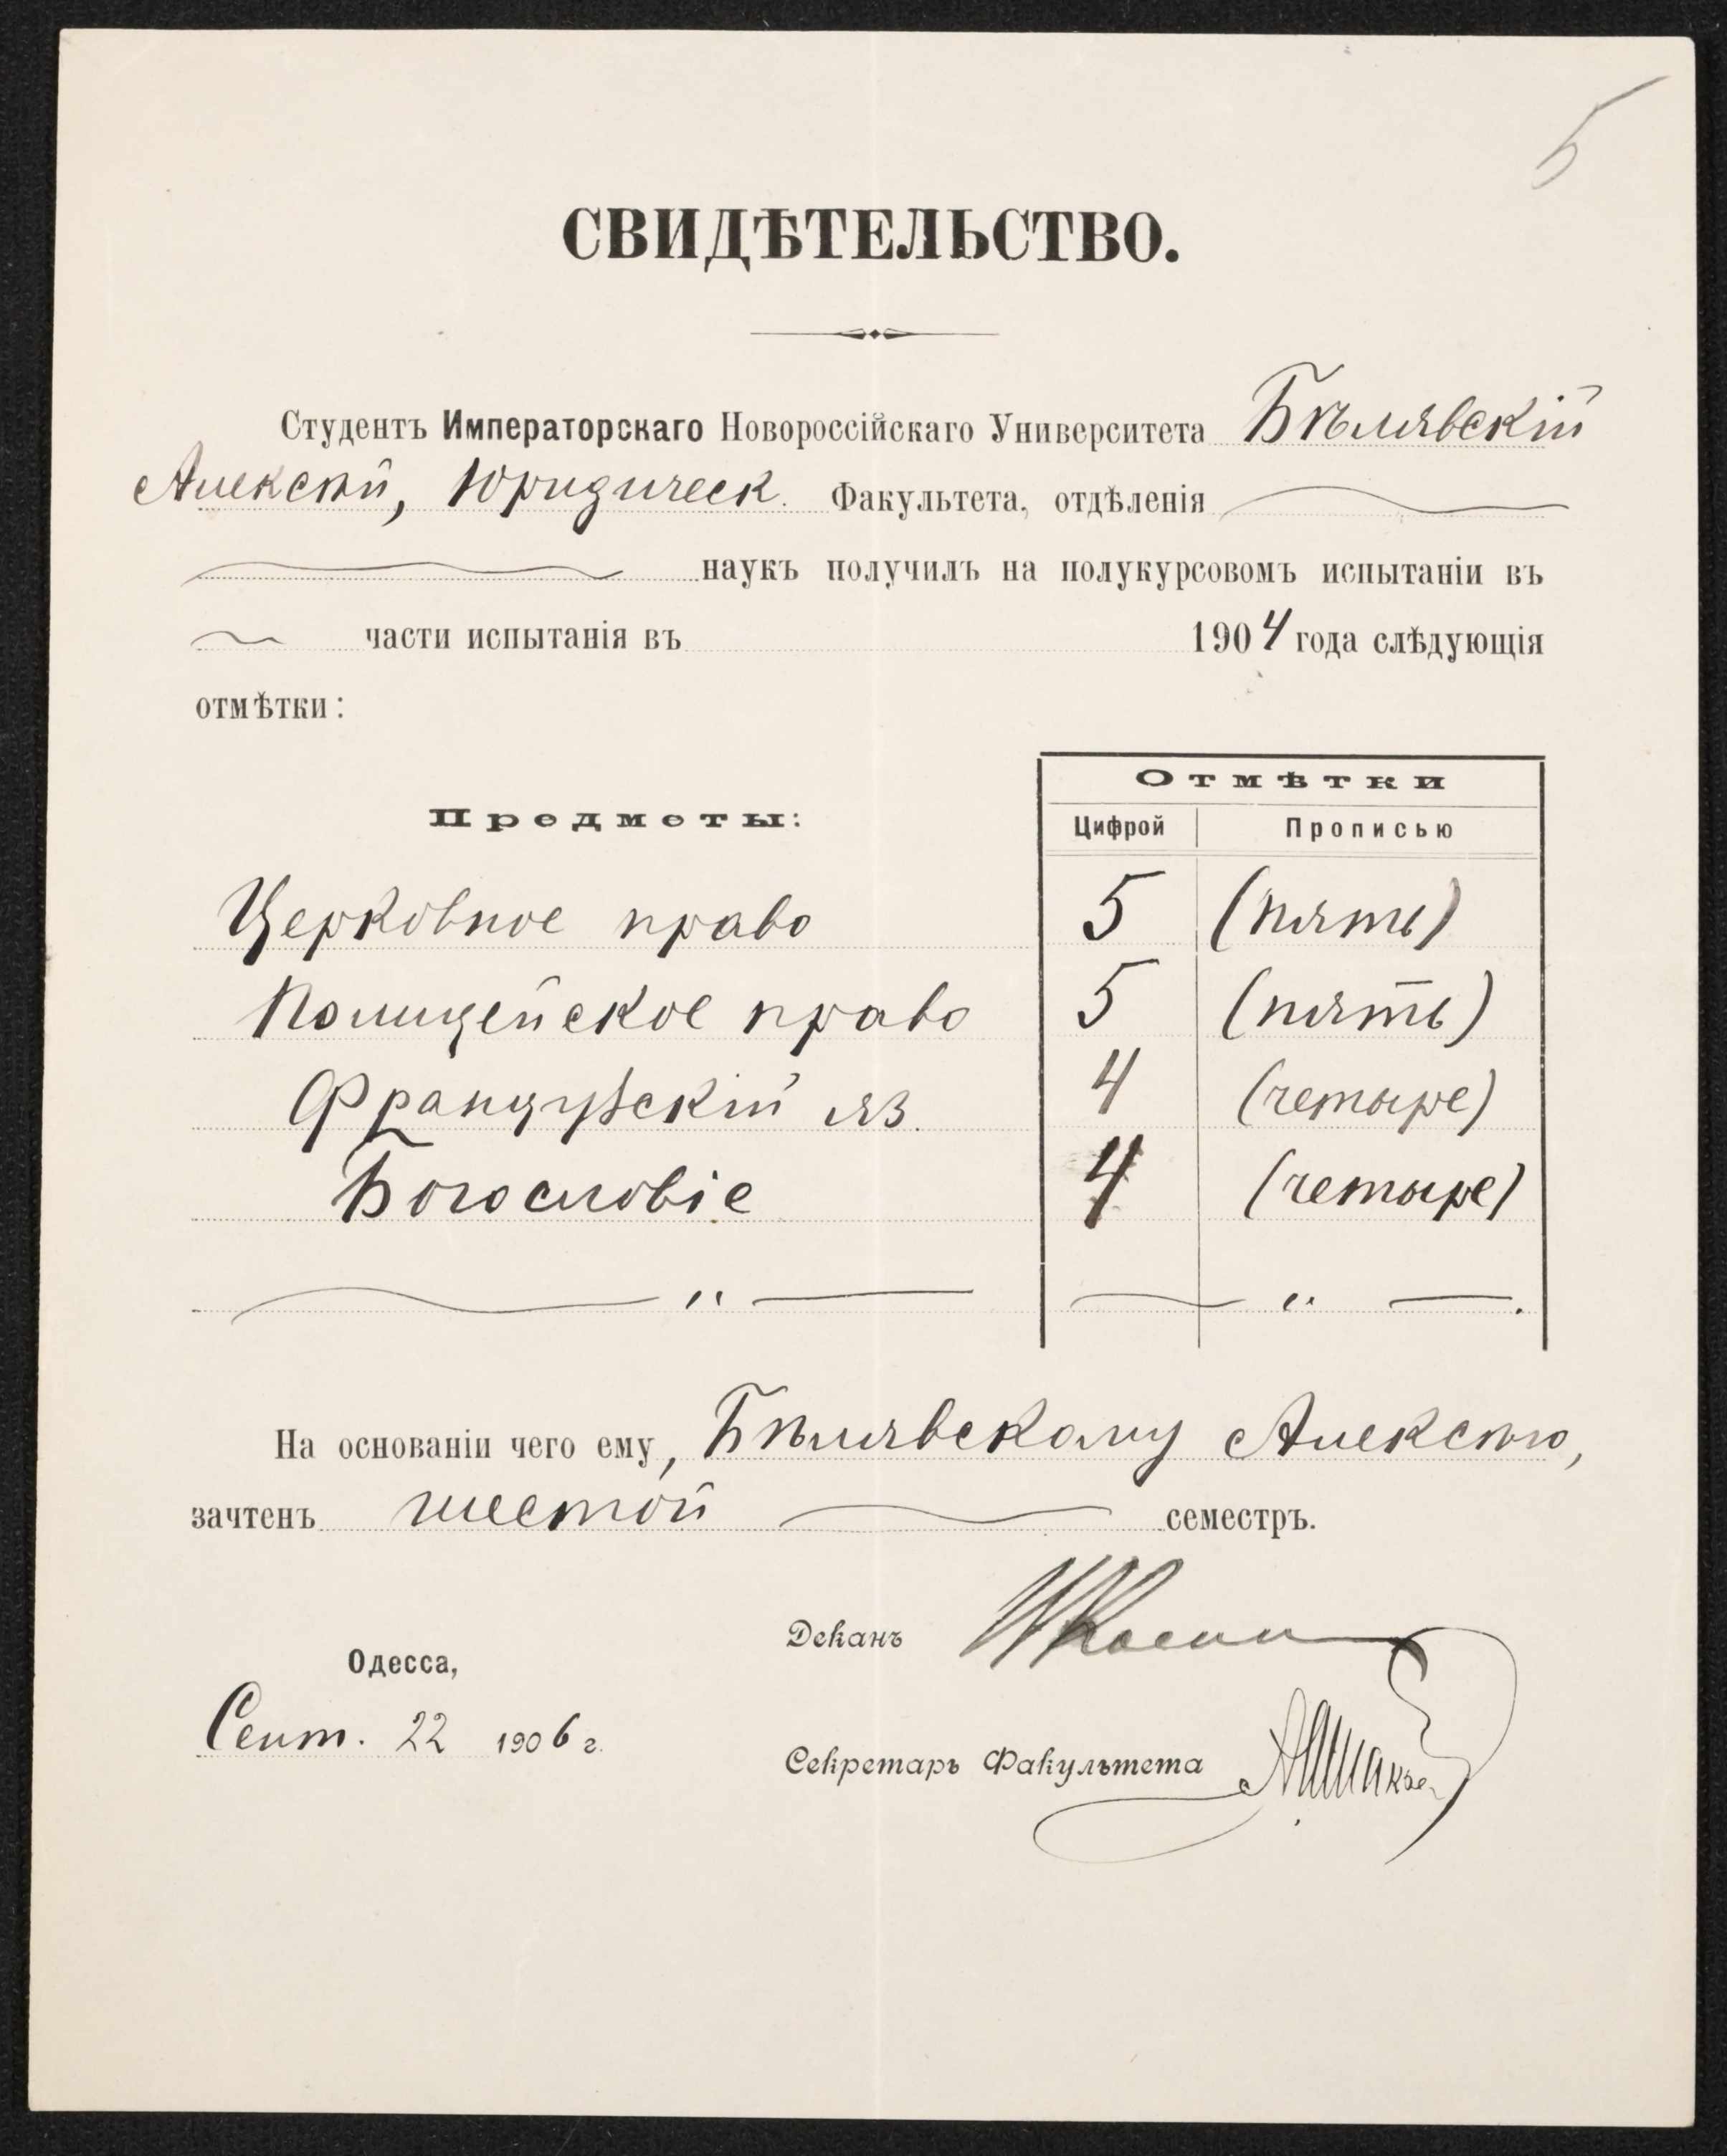 5
СВИДѢТЕЛЬСТВО.
Студентъ Императорскаго Новороссійскаго Университета Бѣлявскій
Алексѣй, Юридическ. Факультета, отдѣленія
наукъ получилъ на полукурсовомъ испытаніи въ
части испытанія въ 1904 года слѣдующія
отмѣтки:
Отмѣтки
Предметы:
Цифрой Прописью
Церковное право 5 (пять)
Полицейское право 5 (пять)
Французскій яз. 4 (четыре)
Богословіе 4 (четыре)
— " — — " —.
На основаніи чего ему, Бѣлявскому Алексѣю,
зачтенъ шестой семестръ.
Деканъ
Одесса,
Сент. 22 1906 г.
Секретарь Факультета